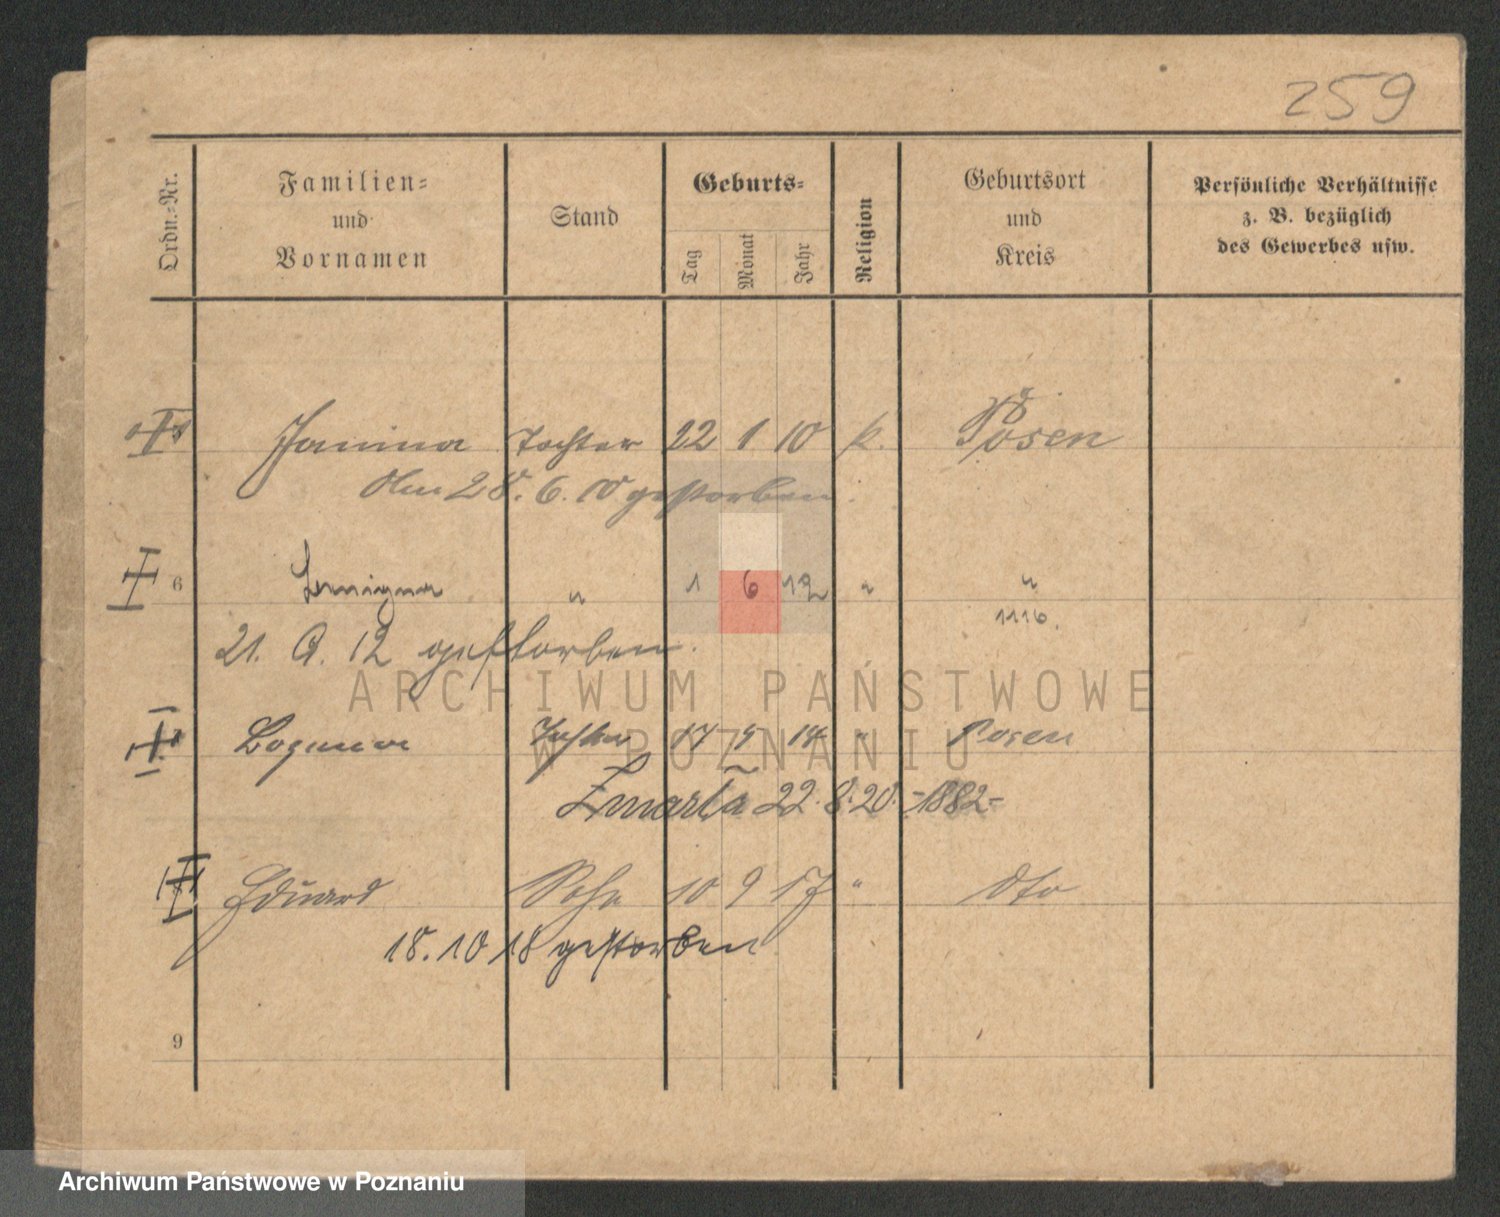 259
Ordn.-Nr.
Familien-
und
Vornamen
Stand
Geburts-
Tag
Monat
Jahr
Religion
Geburtsort
und
Kreis
Persönliche Verhältnisse
z. B. bezüglich
des Gewerbes usw.
Janina Tochter 22 1 10 k. Posen
Am 28. 6. 10 gestorben
6 " 1 6 12 " "
1116.
21. 9. 12 gestorben.
ARCHIWUM PAŃSTWOWE
W POZNANIU
Boguma Tochter 17 5 14 " Posen
Zmarła 22. 8. 20. -1882-
Eduard Sohn 10 9 17 " dto
18. 10 18 gestorben
9
Archiwum Państwowe w Poznaniu